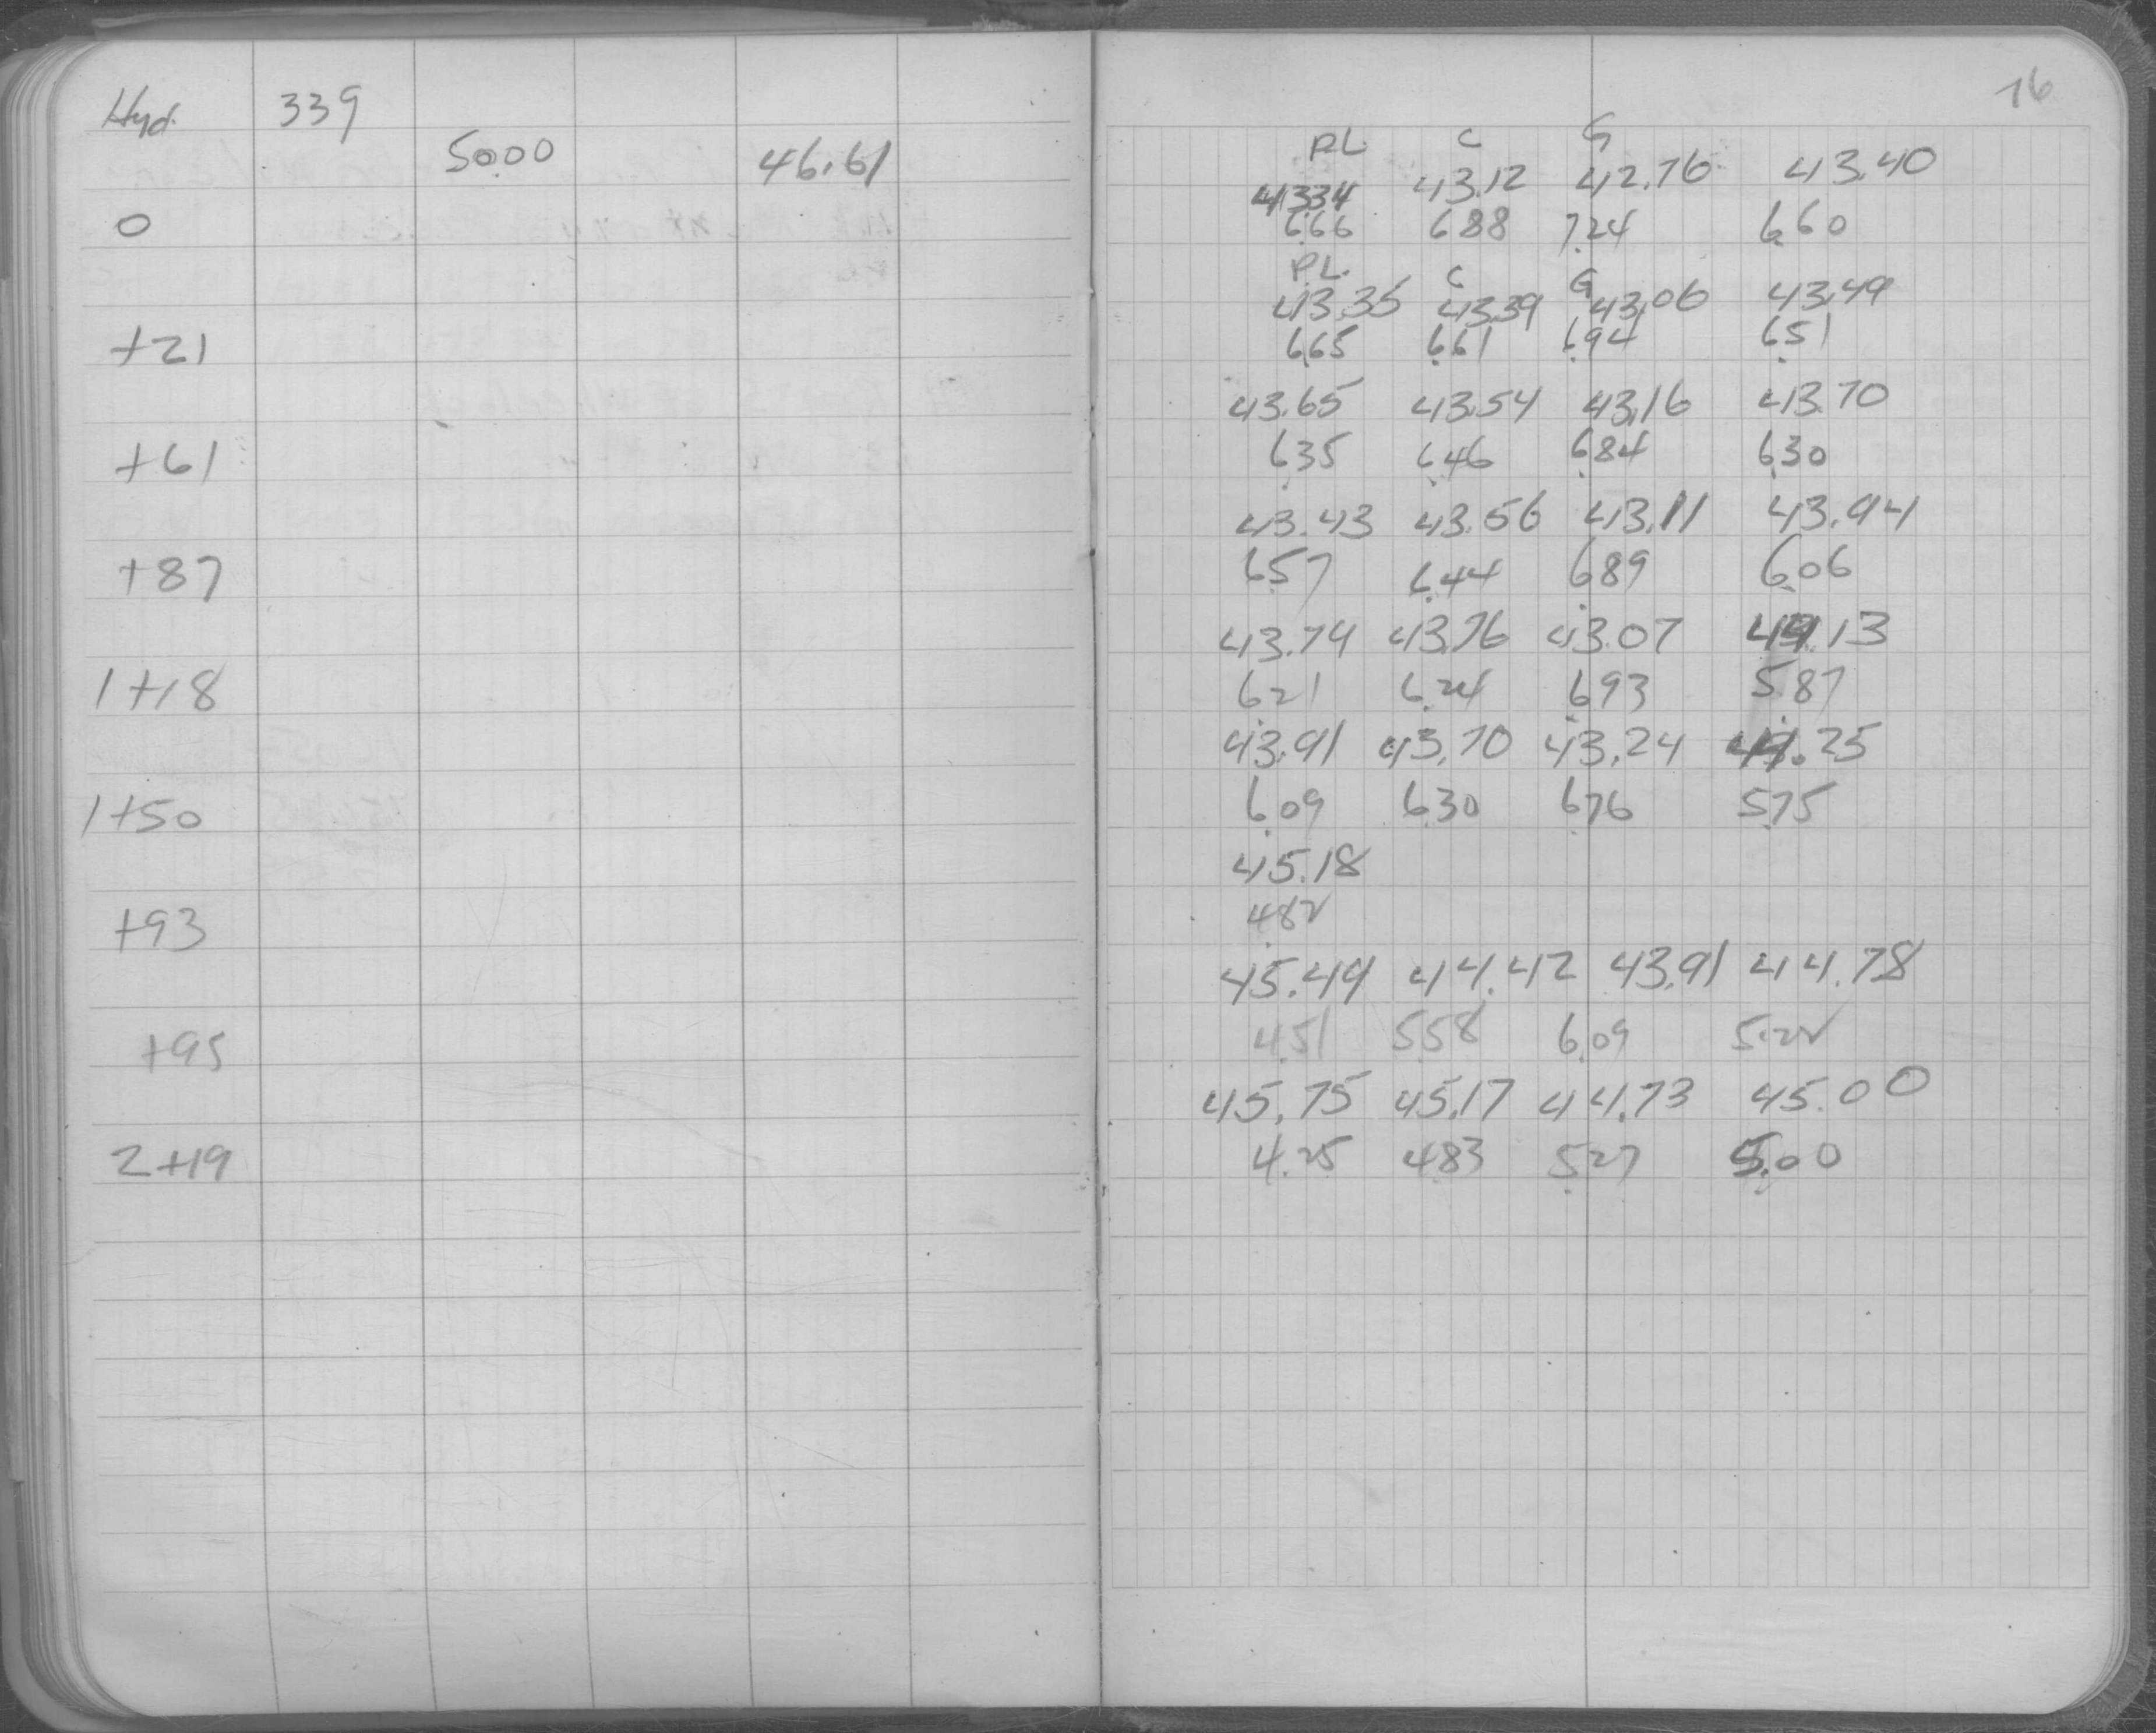 76
Hyd. 339
P.L. C G
50.00 46.61 43.34 43.12 42.76 43.40
0 6.66 6.88 7.24 6.60
P.L. C G
43.35 43.39 43.06 43.49
+21 6.65 6.61 6.94 6.51
43.65 43.54 43.16 43.70
+61 6.35 6.46 6.84 6.30
43.43 43.56 43.11 43.94
+87 6.57 6.44 6.89 6.06
43.79 43.76 43.07 44.13
1+18 6.21 6.24 6.93 5.87
43.91 43.70 43.24 44.25
1+50 6.09 6.30 6.76 5.75
45.18
+93 4.82
45.49 44.42 43.91 44.78
+95 4.51 5.58 6.09 5.22
45.75 45.17 44.73 45.00
2+19 4.25 4.83 5.27 5.00